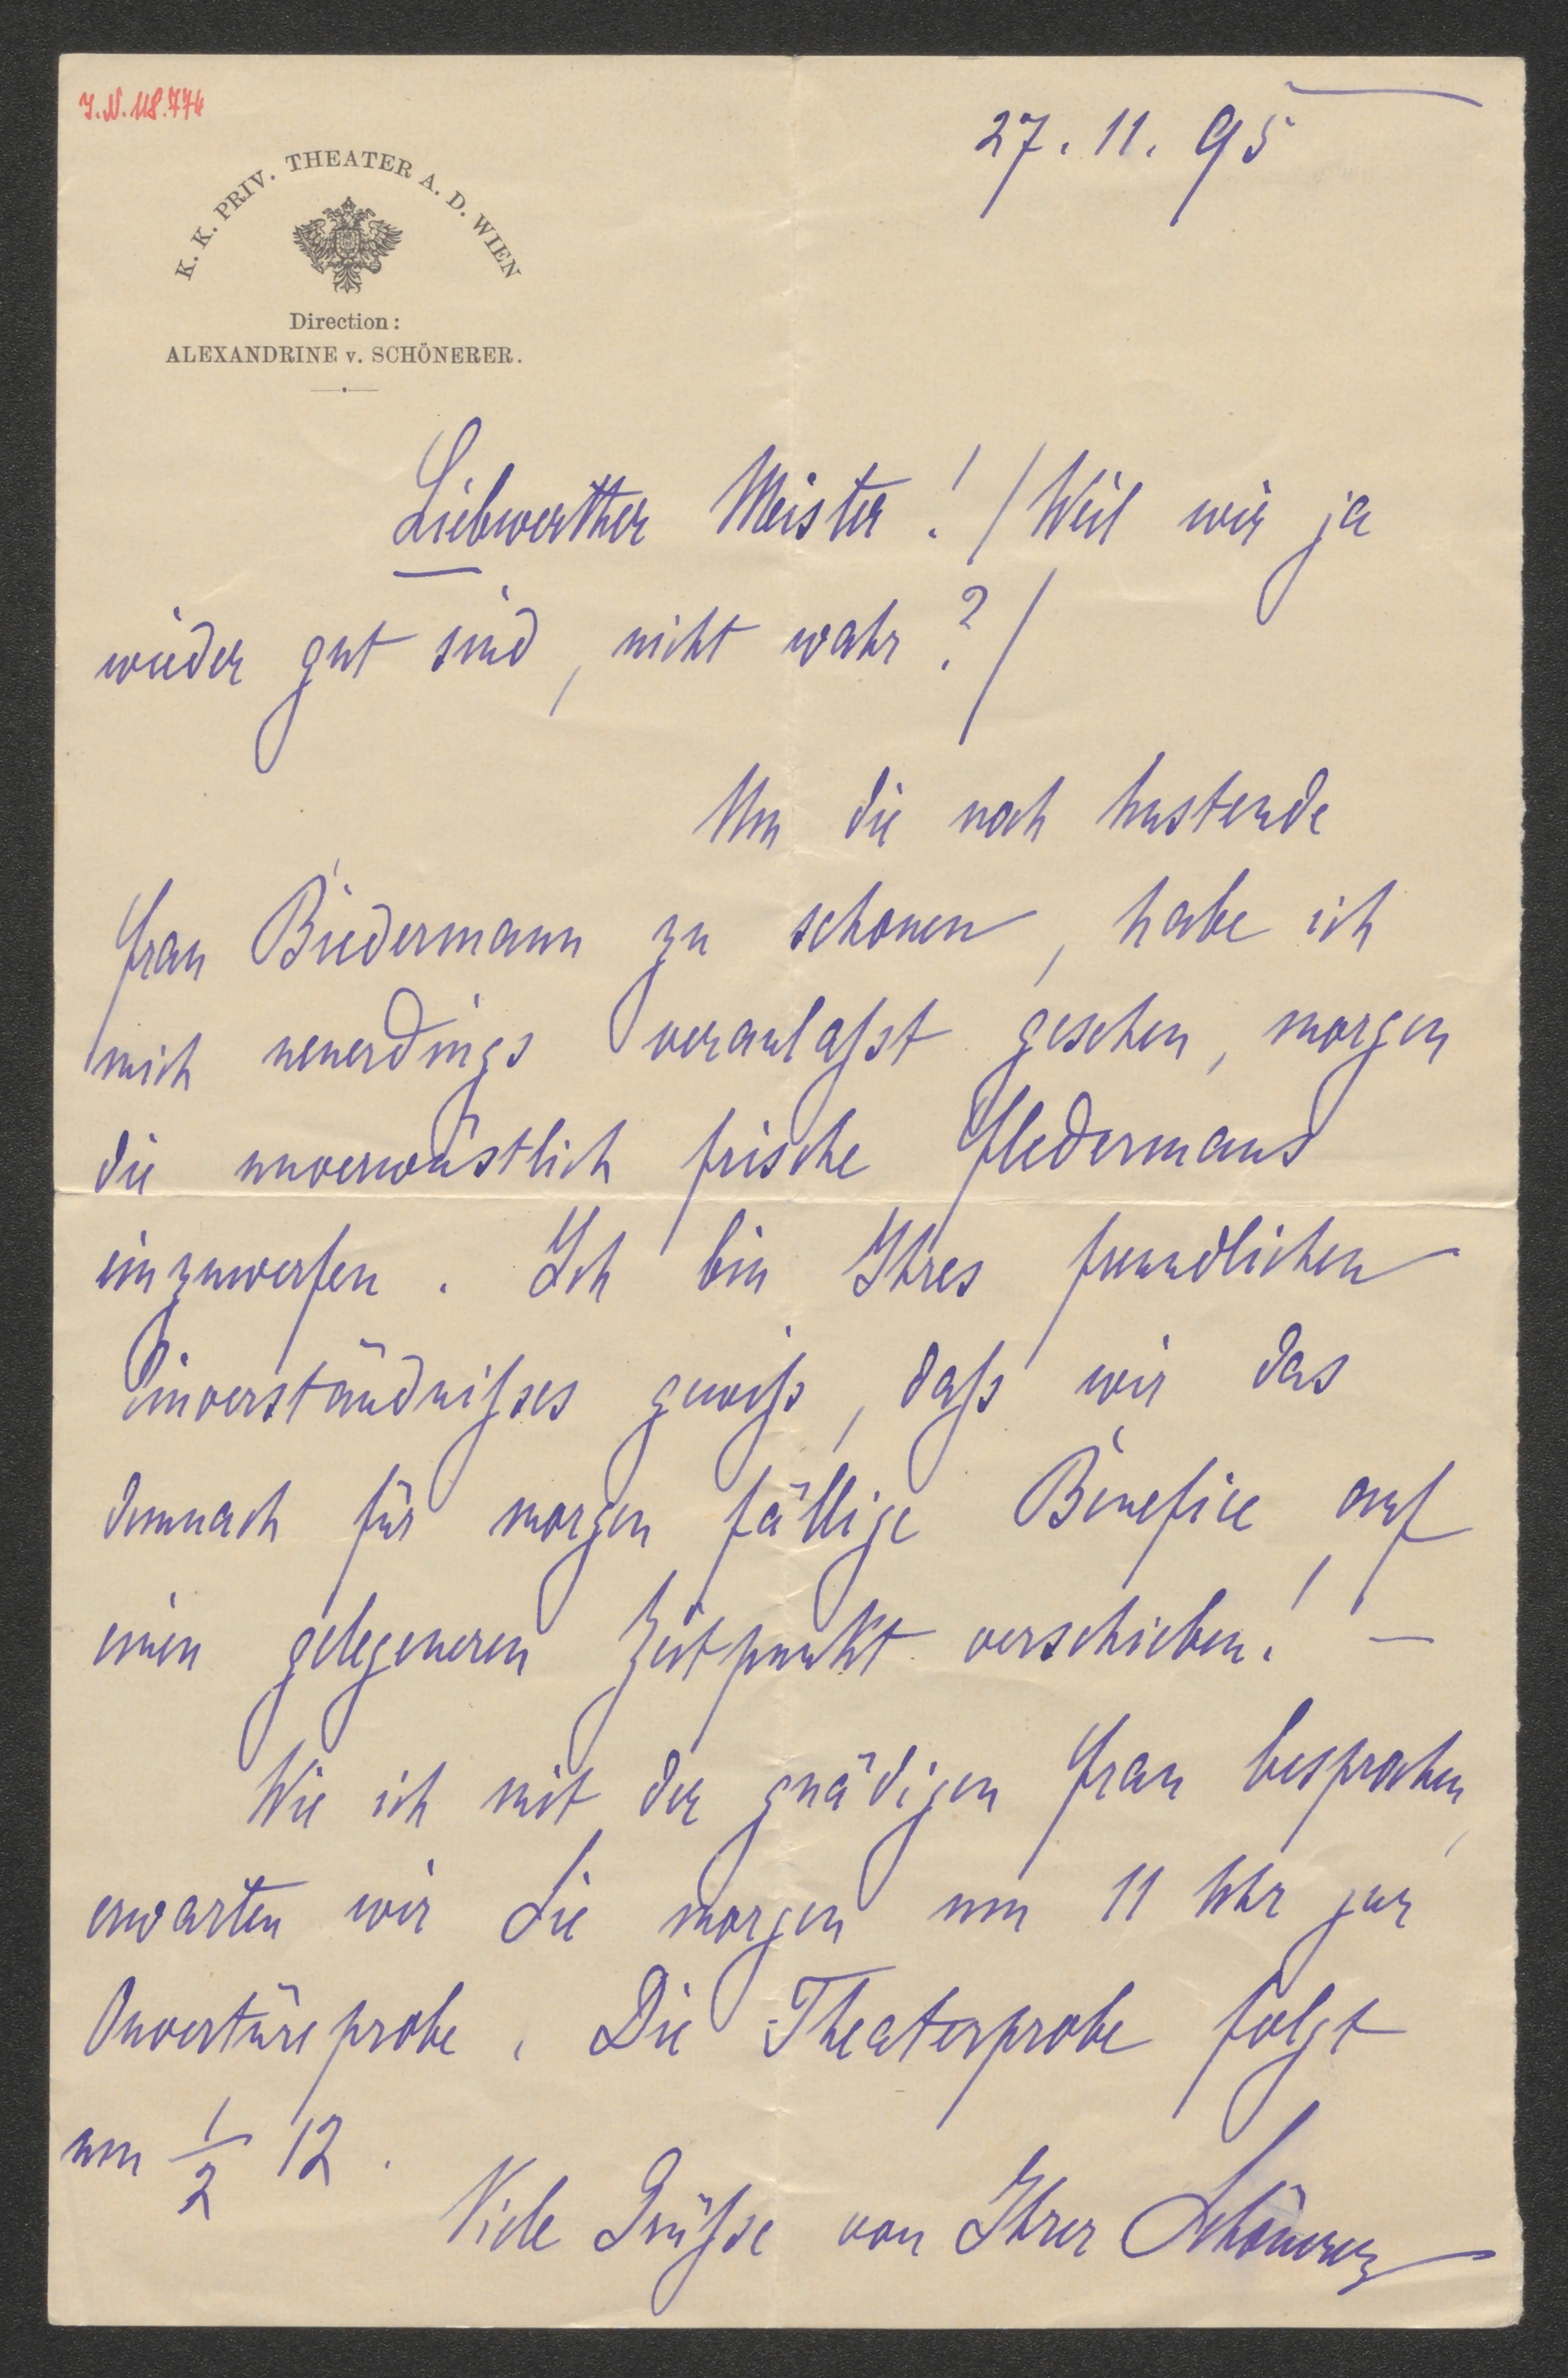 I.N. 118.774
27. 11. 95
K. K. PRIV. THEATER A. D. WIEN
Direction:
ALEXANDRINE v. SCHÖNERER.
Liebwerther Meister! / Weil wir ja
wieder gut sind, nicht wahr? /
Um die noch hustende
Frau Biedermann zu schonen, habe ich
mich neuerdings veranlaßst gesehen, morgen
die unverwüstlich frische Fledermaus
einzuwerfen. Ich bin Ihres freundlichen
Einverständnißses gewiß, daß wir das
demnach für morgen fällige Benefice, auf
einen gelegeneren Zeitpunkt verschieben! –
Wie ich mit der gnädigen Frau besprochen,
erwarten wir Sie morgen um 11 Uhr zur
Ouvertüreprobe. Die Theaterprobe folgt
um 1/2 12.
Viele Grüßse von Ihrer Schönerer